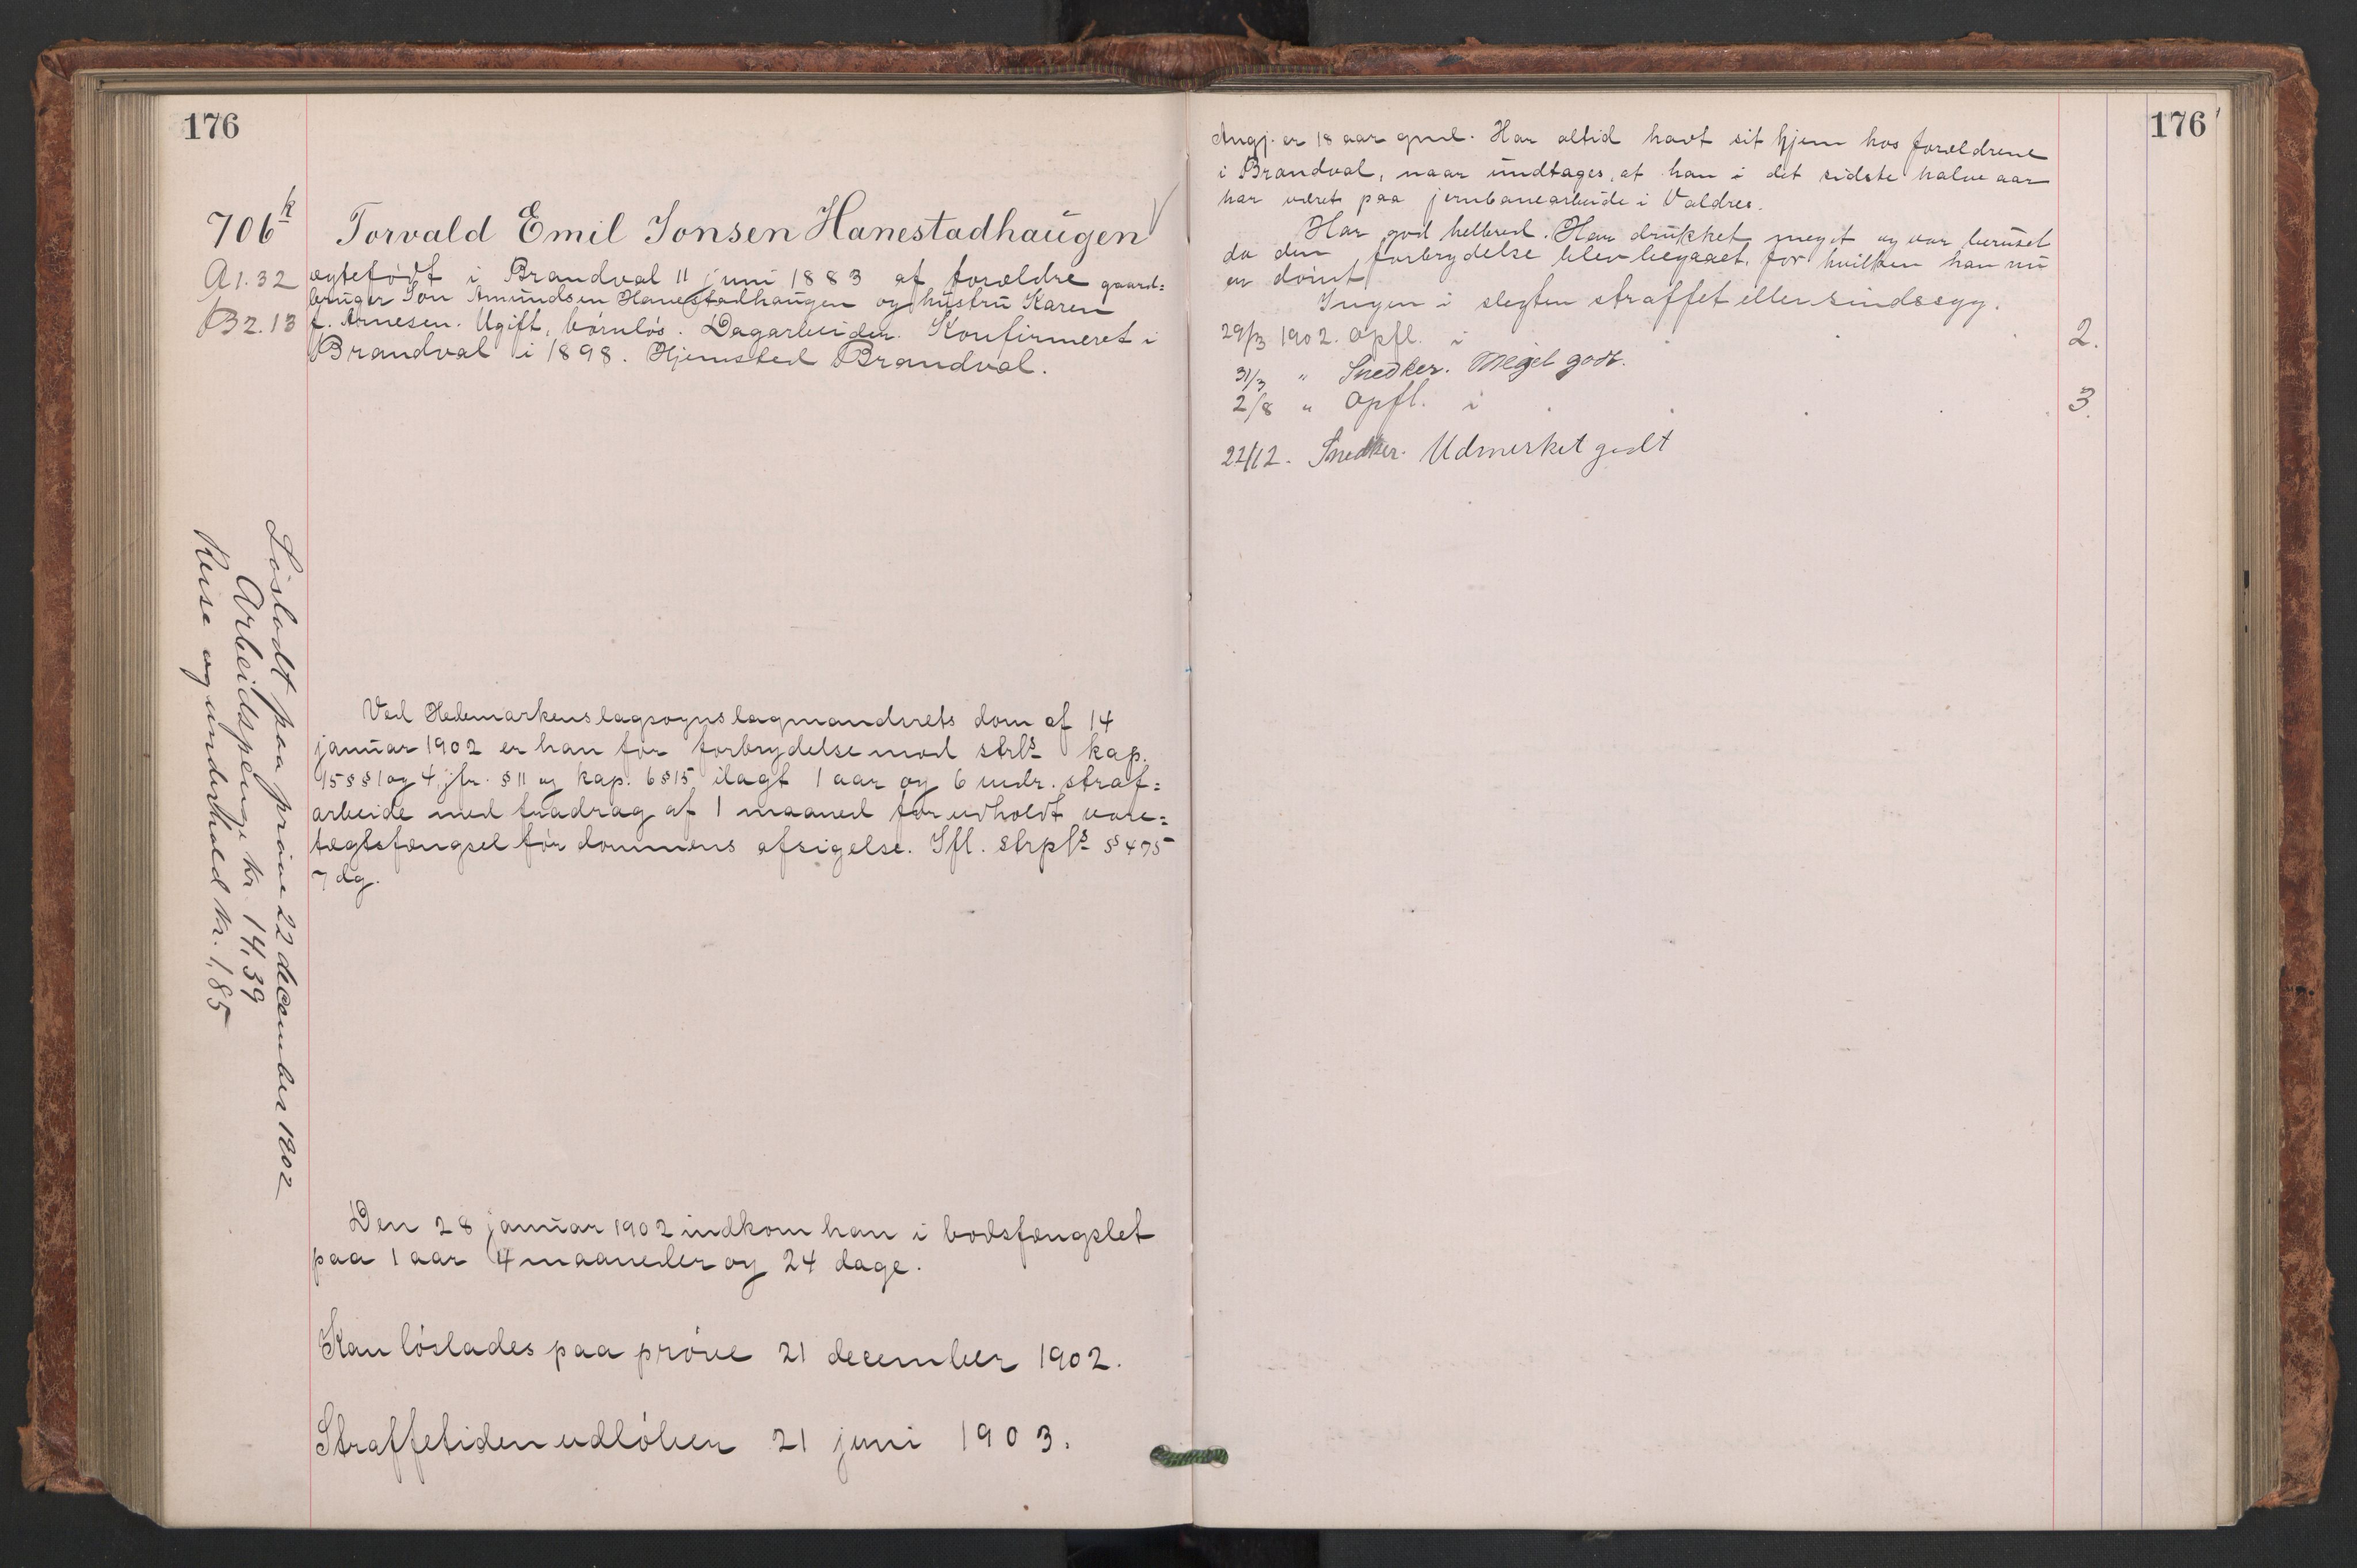 176
706 k
A1.32
B2.13
Torvald Emil Jonsen Hanestadhaugen
egtefødt i Brandval 11 juni 1883 af forældre gaard=
bruger Jon Amundsen Hanestadhaugen og hustru Karen
f. Arnesen. Ugift, børnløs. Dagarbeider. Konfirmeret i
Brandval i 1898. Hjemsted Brandval.
Løsladt paa prøve 22 december 1902
Arbeidspenge kr. 14,39
Reise og underhold kr. 1,85
Ved Hedemarkens lagsogns lagmandsrets dom af 14
januar 1902 er han for forbrydelse mod strls kap.
15 §§ 1 og 4, jfr. § 11 og kap. 6 § 15 ilagt 1 aar og 6 mdr. straf=
arbeide med fradrag af 1 maaned for udholdt vare=
tægtsfængsel før dommens afsigelse. Ifl. strpls § 475
7 dg.
Den 28 januar 1902 indkom han i bodsfængslet
paa 1 aar 4 maaneder og 24 dage.
Kan løslades paa prøve 21 december 1902.
Straffetiden udløber 21 juni 1903.
176
Angj. er 18 aar gml. Har altid havt sit hjem hos forældrene
i Brandval, naar undtages, at han i det sidste halve aar
har været paa jernbanearbeide i Valdres.
Har god helbred. Har drukket meget og var beruset
da den forbrydelse blev begaaet, for hvilken han nu
er dømt.
Ingen i slegten straffet eller sindssyg.
29/3 1902. Opfl. i 2.
31/3 " Snedker. Meget godt.
2/8 " Opfl. i 3.
22/12. Snedker. Udmerket godt